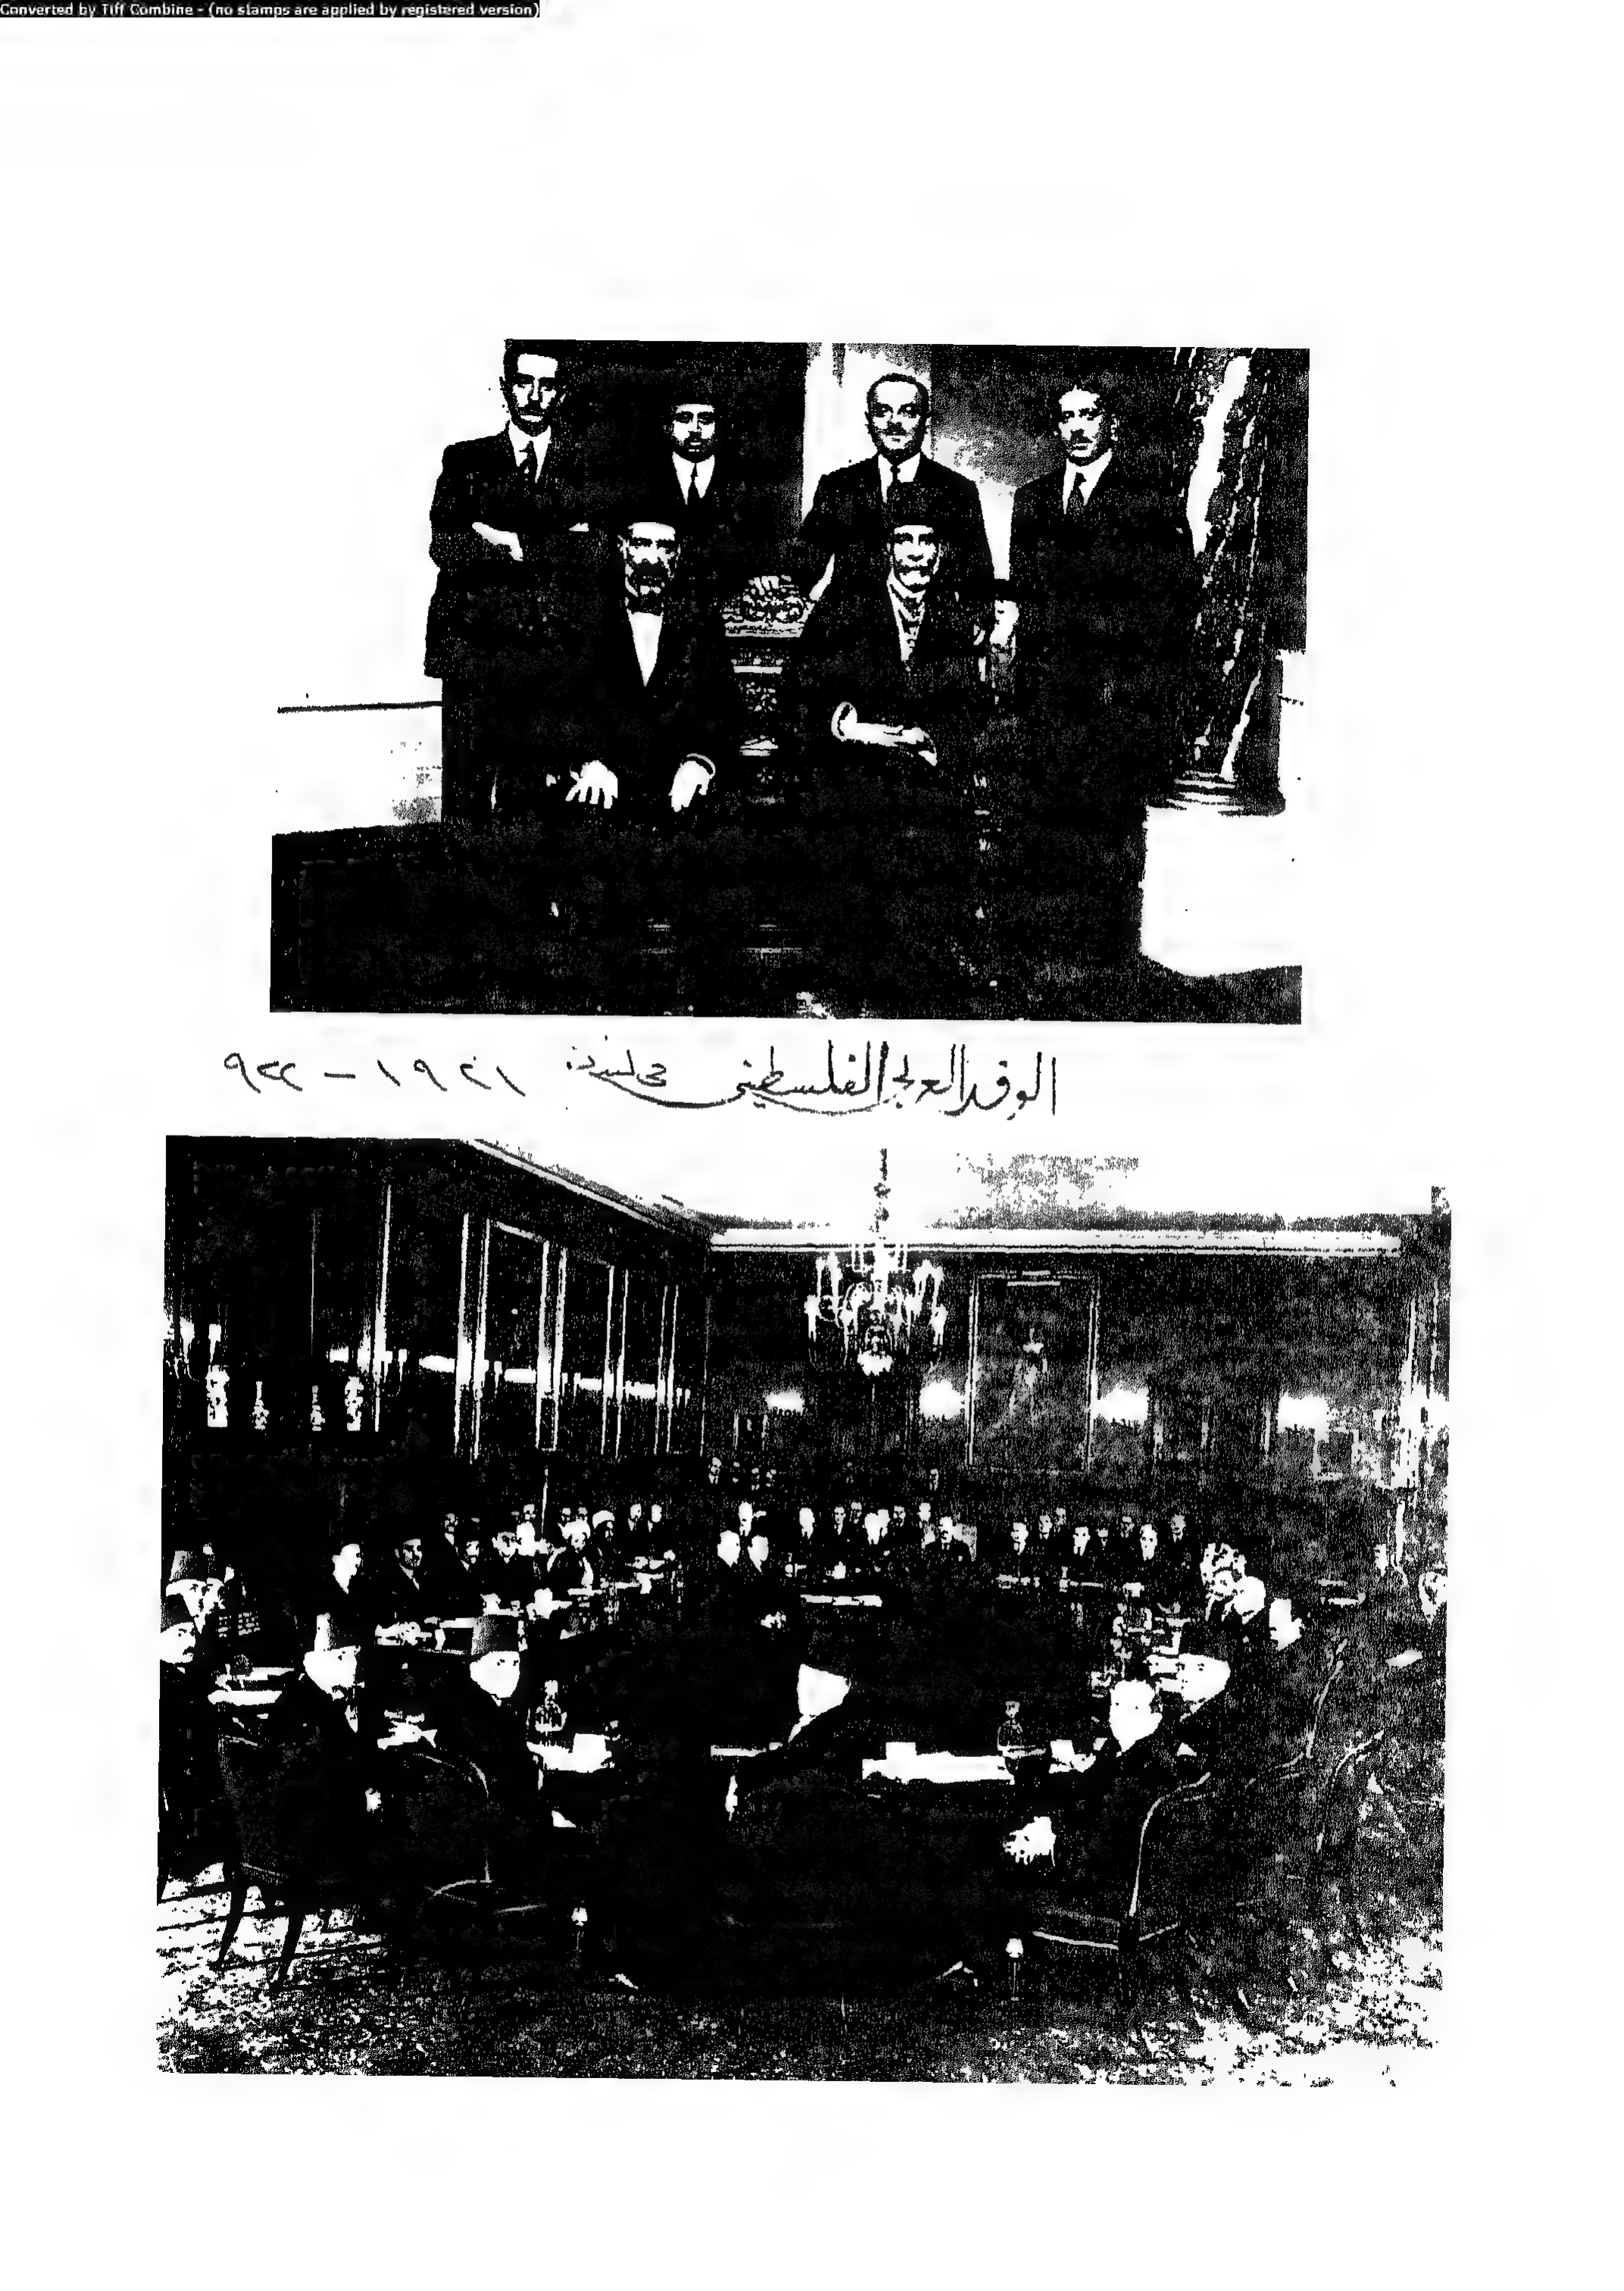 Converted by Tiff Combine - (no stamps are applied by registered version)
الوفد العربي الفلسطيني في لندن ١٩٢١ - ٩٢٢